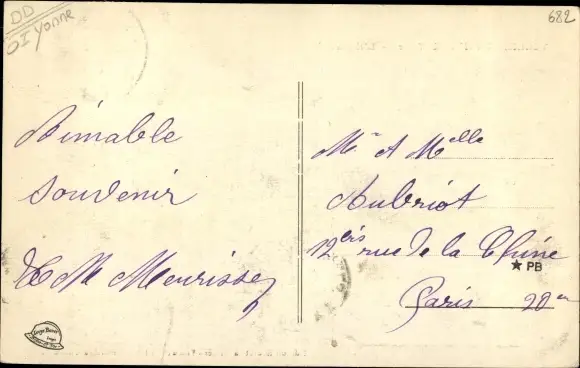 DD
OI Yonne
682
Aimable
souvenir
M Meurissey
Mr et Melle
Aubriot
12 bis rue de la Chine
★ PB
Paris 20e